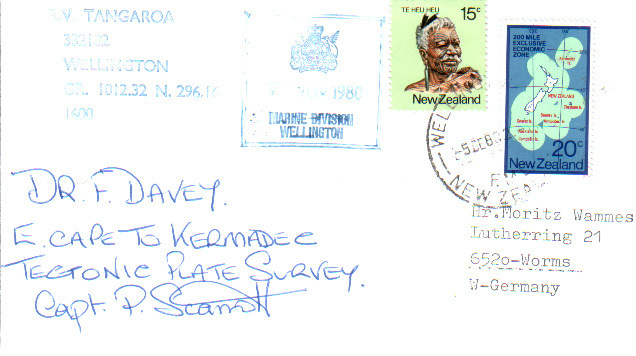 TANGAROA
WELLINGTON
GR. 1012.32 N. 296.16
1600
1980
MARINE DIVISION
WELLINGTON
TE HEU HEU 15c
New Zealand
200 MILE
EXCLUSIVE
ECONOMIC
ZONE
NEW ZEALAND
20c
New Zealand
NEW ZEA
DR. F. DAVEY.
E. CAPE TO KERMADEC
TECTONIC PLATE SURVEY.
Capt. P.
Hr.Moritz Wammes
Lutherring 21
652o-Worms
W-Germany